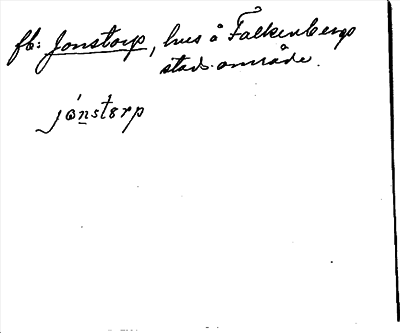 fb: Jonstorp, hus å Falkenbergs
stads område.
jònstorp